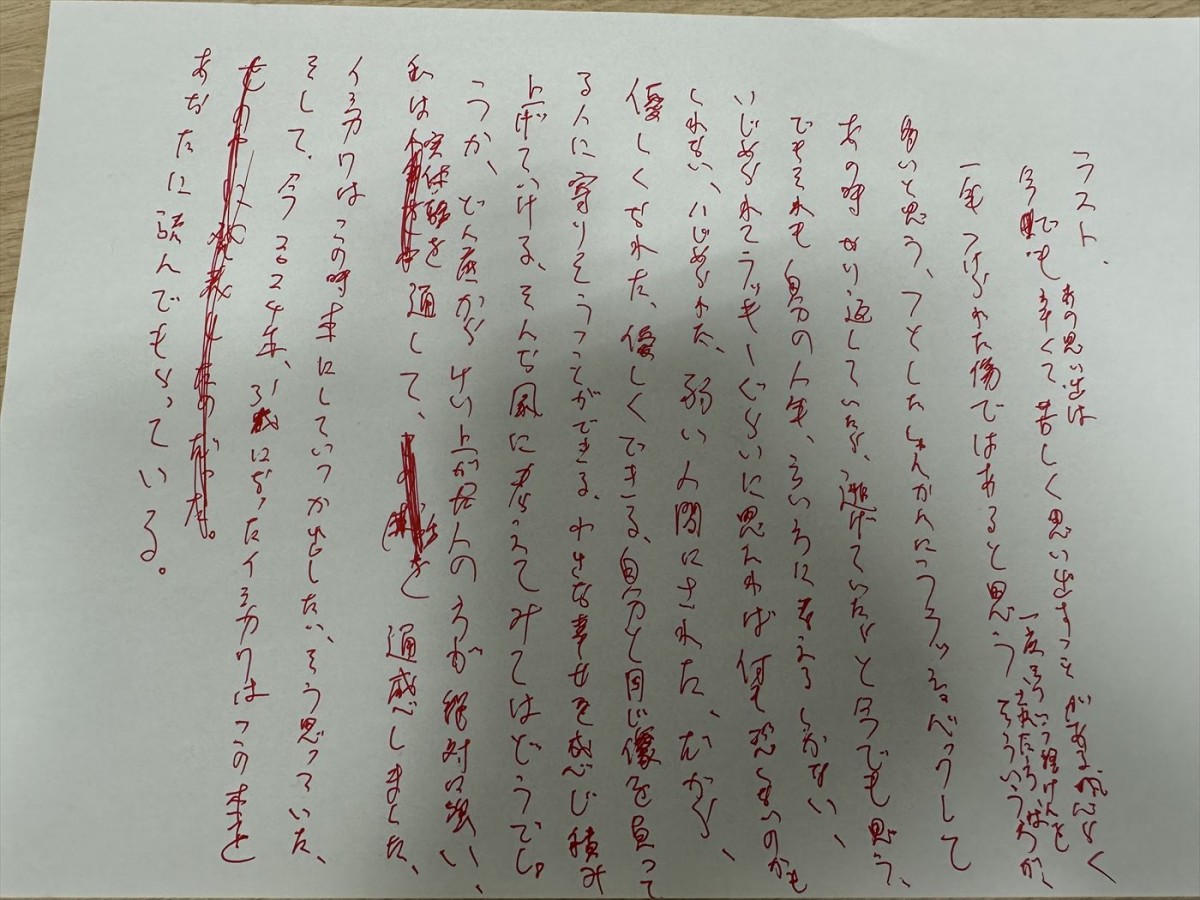 ラスト、あの思い出は
今でも辛くて苦しく思い出すことがある、恐らく
一生つけられた傷ではあると思う
一度そういう経けんを
されたら
そういう方が、
多いと思う、ふとしたしゅんかんにフラッシュバックして
あの時やり返していたら、逃げていたらと今でも思う、
でもそれも自分の人生、そういうに考えるしかない、
いじめられてラッキーぐらいに思えれば何も恐くないのかも
しれない、いじめられた、弱い人間にされた、だから、
優しくなれた、優しくできる、自分と同じ傷を負って
る人に寄りそうことができる、小さな幸せを感じ積み
上げていける、そんな風に考えてみてはどうでし。
つか、どん底からはい上がる人の方が絶対に強い、
私は実体験を通して、を通感しました、
イシカワはこの時本にしていつか出したい、そう思っていた、
そして、今2024年、31歳になったイシカワはこの本を
あなたに読んでもらっている。